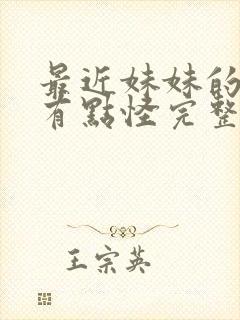 最近妹妹的
有點怪完整
王宗英